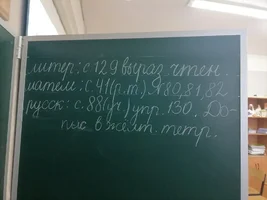 литер: с.129 выраз. чтен.
матем: с.41(р.т.) №80,81,82
русск: с.88(уч) упр.130. До-
пис. в жёлт. тетр.